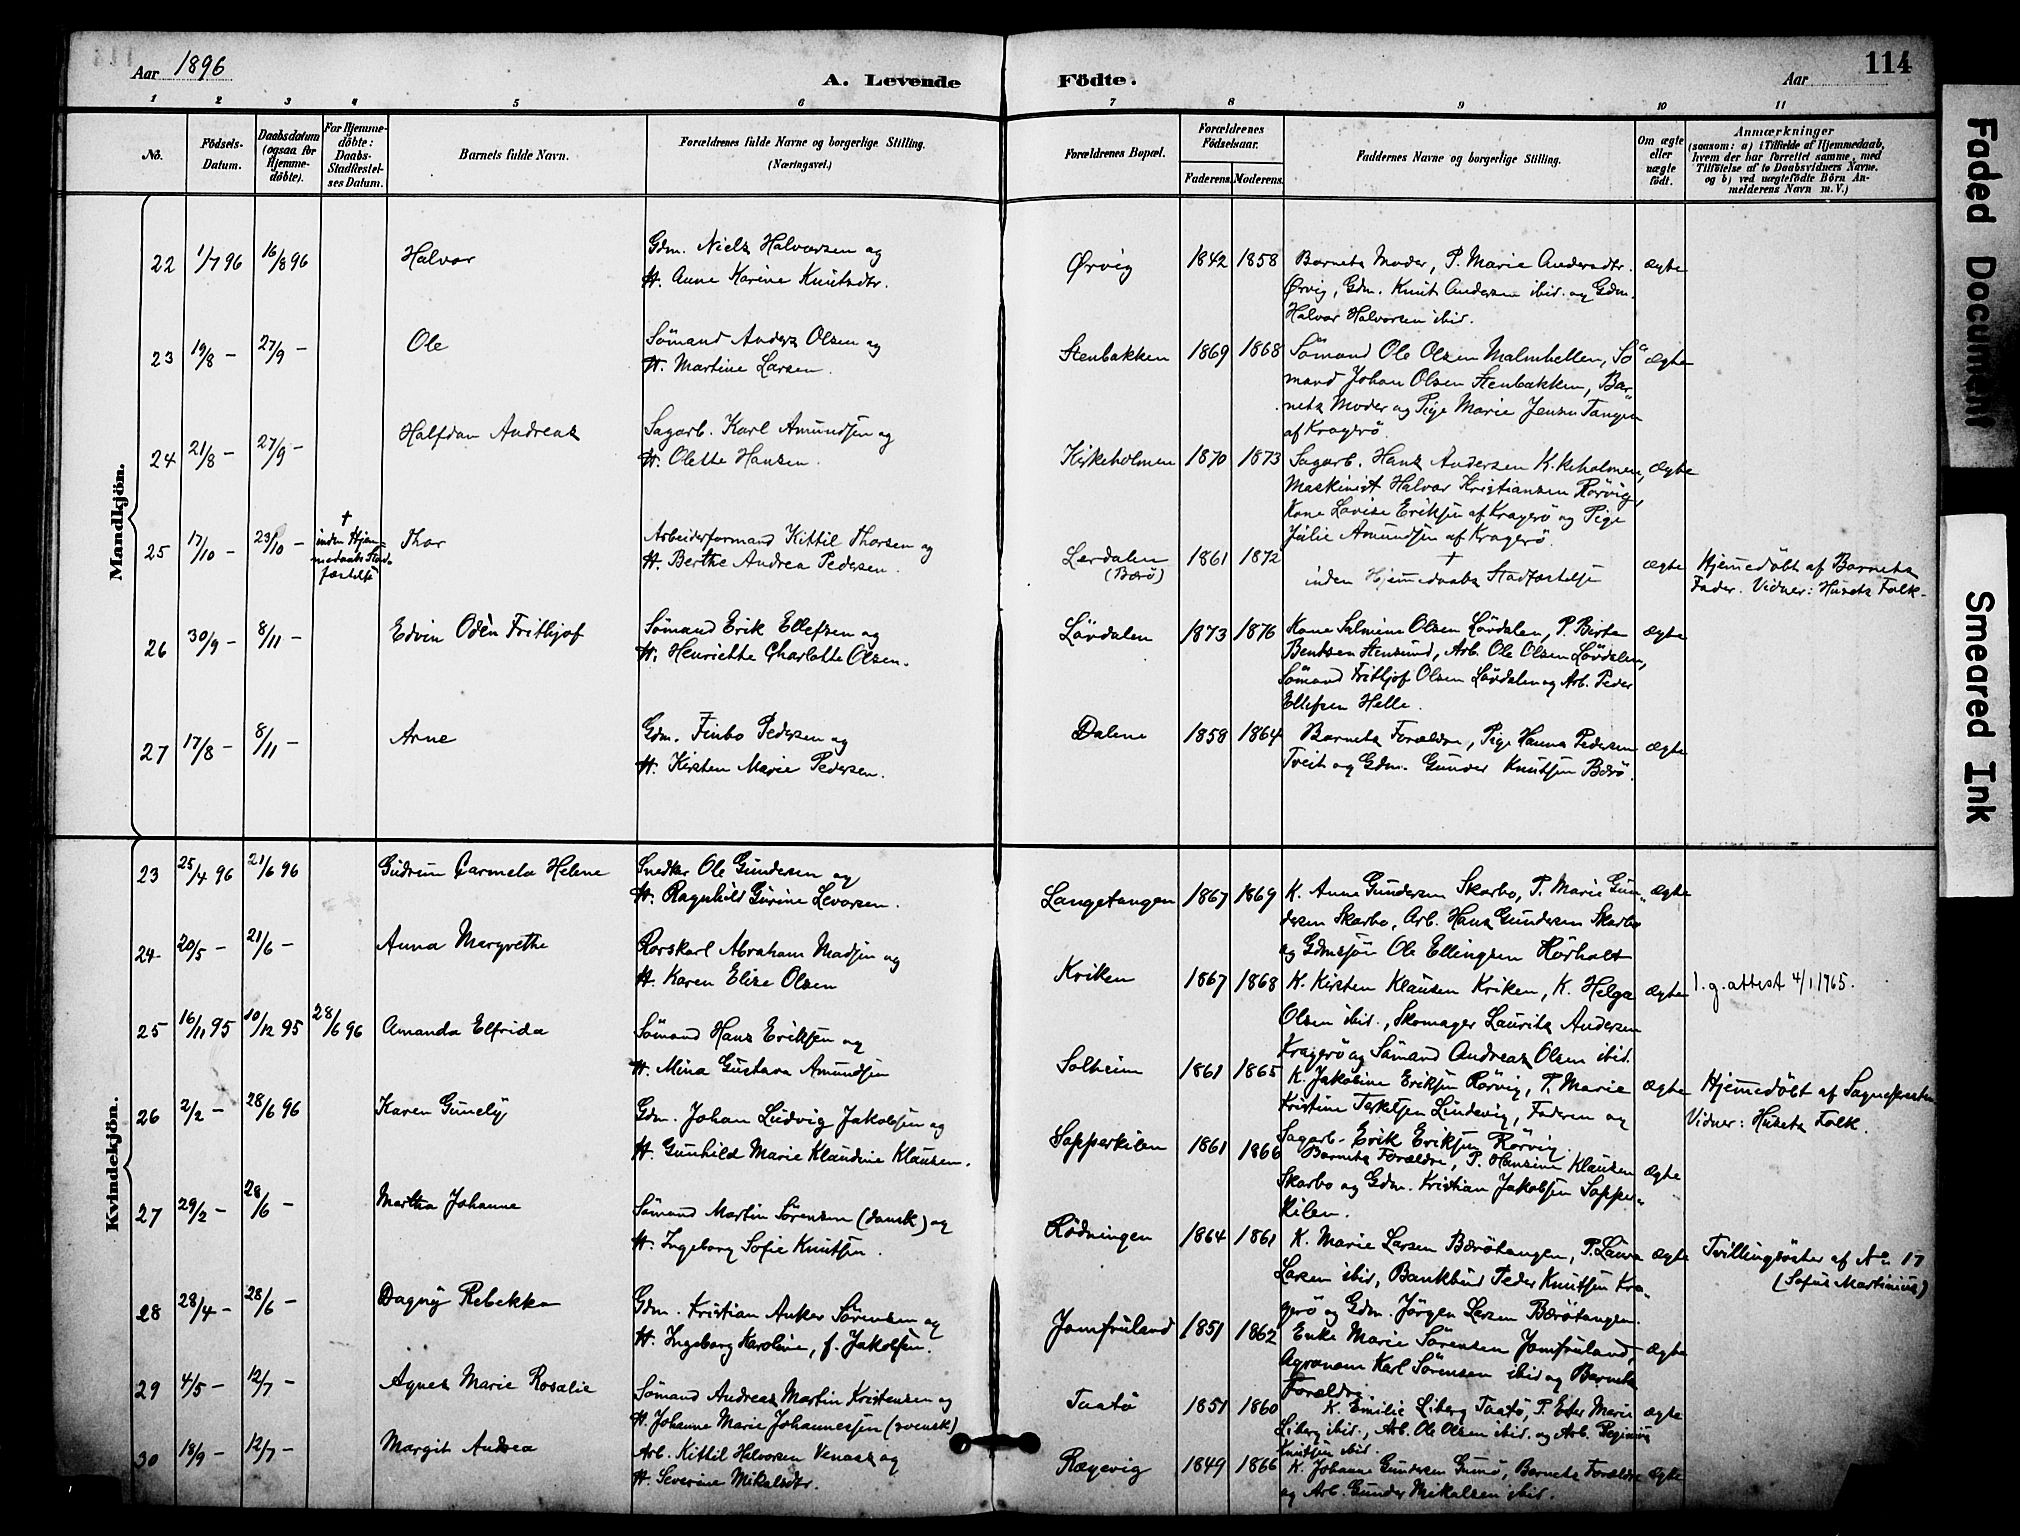 114
Aar 1896
A. Levende Födte.
Aar
1 2 3 4 5 6 7 8 9 10 11
No.
Födsels-Datum.
Daabsdatum (ogsaa for Hjemme-döbte).
For Hjemme-döbte: Daabs-Stadfæstel-ses Datum.
Barnets fulde Navn.
Forældrenes fulde Navne og borgerlige Stilling.
(Næringsvei.)
Forældrenes Bopæl.
Forældrenes Födselsaar.
Faderens. Moderens.
Faddernes Navne og borgerlige Stilling.
Om ægte eller uægte födt.
Anmærkninger
(saasom: a) i Tilfælde af Hjemmedaab, hvem der har forrettet samme, med Tilföielse af to Daabsvidners Navne. og b) ved uægtefödte Börn An-melderens Navn m. V.)
Mandkjön.
22 1/7 96 16/8 96 Halvor
Gdm. Niels Halvorsen og
H. Anne Karine Knutsdtr.
Ørvig 1842 1858
Barnets Moder, P. Marie Andersdtr. ægte
Ørvig, Gdm. Knut Andersen ibid. og Gdm.
Halvor Halvorsen ibid.
23 19/8 – 27/9 – Ole
Sömand Anders Olsen og
H. Martine Larsen.
Stenbakken 1869 1868
Sömand Ole Olsen Malmhellen, Sö" ægte
mand Johan Olsen Stenbakken, Bar"
nets Moder og Pige Marie Jensen Tangen
af Kragerö
24 21/8 – 27/9 – Halfdan Andreas
Sagarb. Karl Amundsen og
H. Olette Hansen.
Kirkeholmen 1870 1873
Sagarb. Hans Andersen K.keholmen, ægte
Maskinist Halvor Kristiansen Rörvig,
Kone Lovise Eriksen af Kragerö og Pige
Julie Amundsen af Kragerö
25 17/10 – 23/10 – † inden Hjem-medaabs Stad-fæstelse
Thor
Arbeiderformand Kittil Thorsen og
H. Berthe Andrea Pedersen.
Lerdalen (Bærö) 1861 1872
†
inden Hjemmedaabs Stadfæstelse ægte
Hjemmedöbt af Barnets
Fader. Vidner: Husets Folk.
26 30/9 – 8/11 – Edvin Odén Frithjof
Sömand Erik Ellefsen og
H. Henriette Charlotte Olsen.
Lövdalen 1873 1876
Kone Salmine Olsen Lövdalen, P. Birte ægte
Bentsen Stensund, Arb. Ole Olsen Lövdalen,
Sömand Frithjof Olsen Lövdalen og Arb. Peder
Ellefsen Helle.
27 17/8 – 8/11 – Arne
Gdm. Finbo Pedersen og
H. Kirsten Marie Pedersen.
Dalene 1858 1864
Barnets Forældre, Pige Hanna Pedersen ægte
Tveit og Gdm. Gunder Knutsen Bærö.
Kvindekjön.
23 25/4 96 21/6 96 Gudrun Carmela Helene
Snedker Ole Gundersen og
H. Ragnhild Gurine Levorsen.
Langetangen 1867 1869
K. Anne Gundersen Skarbo, P. Marie Gun" ægte
dersen Skarbo, Arb. Hans Gundersen Skarbo
og Gdmssön Ole Ellingsen Hörholt
24 20/5 – 21/6 – Anna Margrethe
Rorskarl Abraham Madsen og
H. Karen Elise Olsen
Kriken 1867 1868
K. Kirsten Klausen Kriken, K. Helga ægte
Olsen ibid., Skomager Laurits Andersen
Kragerö og Sömand Andreas Olsen ibid.
1. g. attest 4/1 1965.
25 16/11 95 10/12 95 28/6 96 Amanda Elfrida
Sömand Hans Eriksen og
H. Mina Gustava Amundsen
Solheim 1861 1865
K. Jakobine Eriksen Rörvig, P. Marie ægte
Kristine Terkelsen Lindevig, Faderen og
Sagarb. Erik Eriksen Rörvig.
Hjemmedöbt af Sognepresten
Vidner: Husets Folk.
26 2/2 – 28/6 96 Karen Gunely
Gdm. Johan Ludvig Jakobsen og
H. Gunhild Marie Klaudine Klausen.
Sopperkilen 1861 1866
Barnets Forældre, P. Hansine Klausen ægte
Skarbo og Gdm. Kristian Jakobsen Sopper"
kilen.
27 29/2 – 28/6 – Martha Johanne
Sömand Martin Sörensen (dansk) og
H. Ingeborg Sofie Knutsen.
Lödningen 1864 1861
K. Marie Larsen Bærötangen, P. Laura ægte
Larsen ibid, Bankbud Peder Knutsen Kra"
gerö og Gdm. Jörgen Larsen Bærötangen.
Tvillingsöster af No 17
(Sofus Martinius)
28 28/4 – 28/6 – Dagny Rebekka
Gdm. Kristian Anker Sörensen og
H. Ingeborg Karoline, f. Jakobsen.
Jomfruland 1851 1862
Enke Marie Sörensen Jomfruland, ægte
Agronom Karl Sörensen ibid og Barnets
Forældre.
29 4/5 – 12/7 – Agnes Marie Rosalie
Sömand Andreas Martin Kristensen og
H. Johanne Marie Johannessen (svensk)
Taatö 1851 1860
K. Emilie Liberg Taatö, P. Ester Marie ægte
Liberg ibid., Arb. Ole Olsen ibid. og Arb.
Knutsen ibid.
30 18/9 – 12/7 – Margit Andrea
Arb. Kittil Halvorsen Venaas og
H. Severine Mikalsdtr.
Røgevig 1849 1866
K. Johanne Gundersen Gumö, Barnets Forældre ægte
og Arb. Gunder Mikalsen ibid.
Faded Document
Smeared Ink